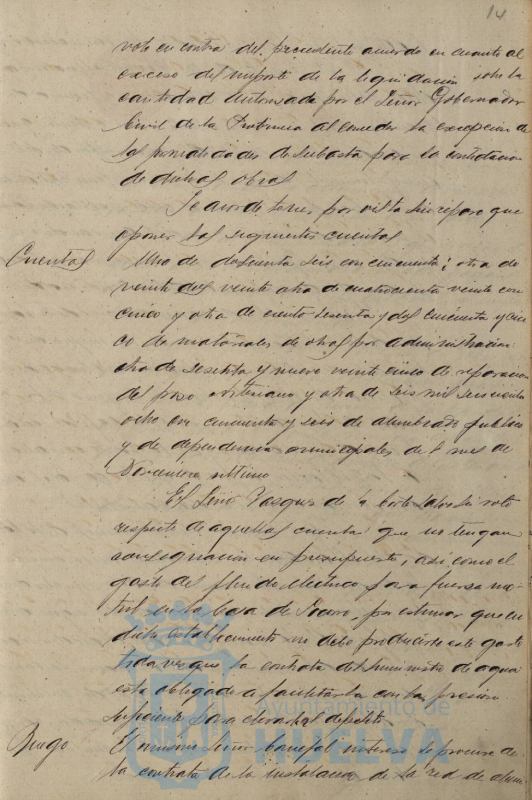 14
voto en contra del precedente acuerdo en cuanto al
exceso del importe de la liquidación sobre la
cantidad autorizada por el Señor Gobernador
Civil de la Provincia al conceder la excepcion de
las formalidades de subasta para la contratacion
de dichas obras
Se acordo tener por vista sin reparo que
oponer las siguientes cuentas
Cuentas
Una de doscientas seis con cincuenta; otra de
veinte dos veinte otra de cuatrocientas veinte con
cinco y otra de ciento sesenta y dos cincuenta y cin
co de materiales de obras por administracion
otra de sesenta y nueve veinte cinco de reparacion
del pozo Artesiano y otra de seis mil seiscientas
ocho con cincuenta y seis de alumbrado publico
y de dependencias municipales del mes de
Noviembre ultimo
El Señor Vazquez de la Corte salvó su voto
respecto de aquellas cuentas que no tengan
consignacion en presupuesto, asi como el
gasto del fluido electrico para fuerza mo
triz en la Casa de Socorro, por estimar que en
dicho establecimiento no debe producirse este gasto
toda vez que la contrata del suministro de agua
esta obligada a facilitarla con la presion
suficiente para elevarla al deposito
Ruego
El mismo Señor Concejal intereso se procure de
la contrata de la instalacion de la red de alum
Ayuntamiento de
HUELVA